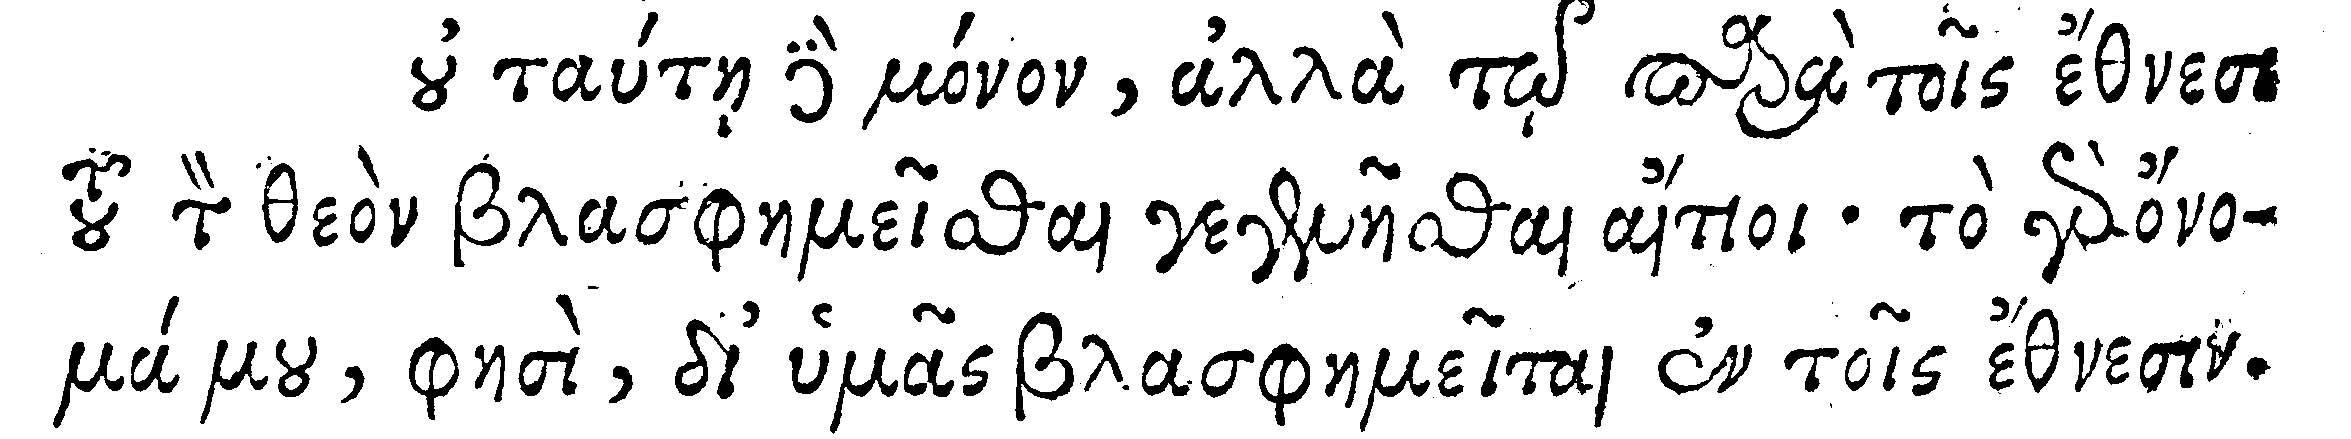 οὐ ταύτῃ δὲ μόνον, ἀλλὰ τῷ παρὰ τοῖς ἔθνεσι
τοῦ τὸν θεὸν βλασφημεῖσθαι γεγενῆσθαι αἴτιοι· τὸ γὰρ ὄνο-
μά μου, φησὶ, δι' ὑμᾶς βλασφημεῖται ἐν τοῖς ἔθνεσιν.